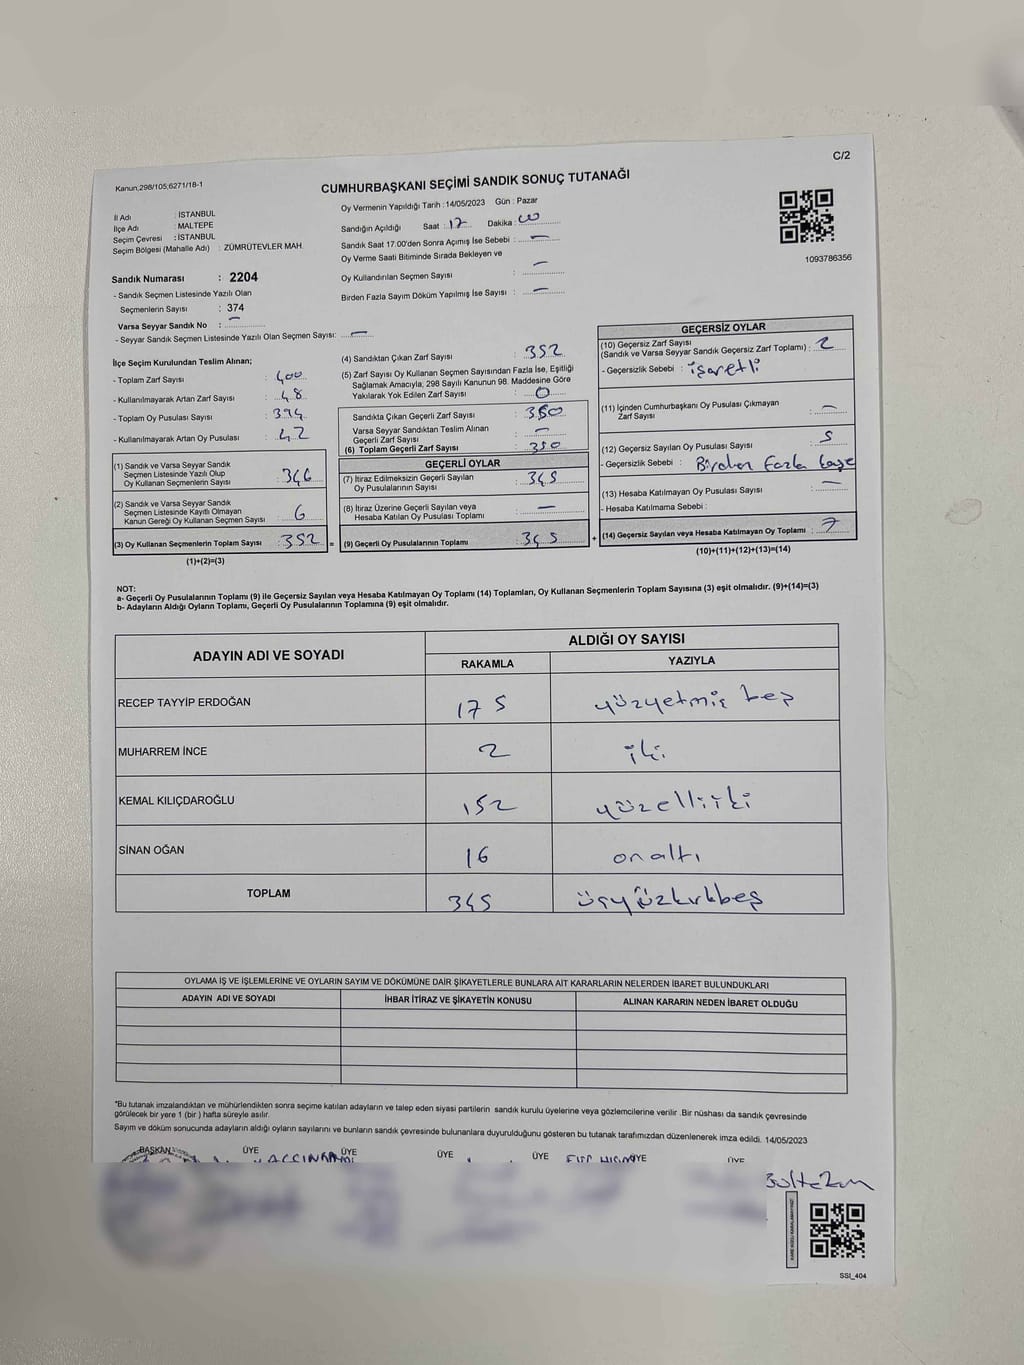 C/2
Kanun,298/105;6271/18-1
CUMHURBAŞKANI SEÇİMİ SANDIK SONUÇ TUTANAĞI
İl Adı : İSTANBUL
İlçe Adı : MALTEPE
Seçim Çevresi : İSTANBUL
Seçim Bölgesi (Mahalle Adı) : ZÜMRÜTEVLER MAH.
Sandık Numarası : 2204
- Sandık Seçmen Listesinde Yazılı Olan
Seçmenlerin Sayısı : 374
Varsa Seyyar Sandık No : –
- Seyyar Sandık Seçmen Listesinde Yazılı Olan Seçmen Sayısı: –
Oy Vermenin Yapıldığı Tarih : 14/05/2023 Gün : Pazar
Sandığın Açıldığı Saat : 17 Dakika : 00
Sandık Saat 17.00'den Sonra Açımış İse Sebebi : –
Oy Verme Saati Bitiminde Sırada Bekleyen ve
Oy Kullandırılan Seçmen Sayısı : –
Birden Fazla Sayım Döküm Yapılmış İse Sayısı : –
1093786356
İlçe Seçim Kurulundan Teslim Alınan;
- Toplam Zarf Sayısı : 400
- Kullanılmayarak Artan Zarf Sayısı : 48
- Toplam Oy Pusulası Sayısı : 394
- Kullanılmayarak Artan Oy Pusulası : 42
(1) Sandık ve Varsa Seyyar Sandık
Seçmen Listesinde Yazılı Olup
Oy Kullanan Seçmenlerin Sayısı : 346
(2) Sandık ve Varsa Seyyar Sandık
Seçmen Listesinde Kayıtlı Olmayan
Kanun Gereği Oy Kullanan Seçmen Sayısı : 6
(3) Oy Kullanan Seçmenlerin Toplam Sayısı : 352 =
(1)+(2)=(3)
(4) Sandıktan Çıkan Zarf Sayısı : 352
(5) Zarf Sayısı Oy Kullanan Seçmen Sayısından Fazla İse, Eşitliği
Sağlamak Amacıyla, 298 Sayılı Kanunun 98. Maddesine Göre
Yakılarak Yok Edilen Zarf Sayısı : 0
Sandıkta Çıkan Geçerli Zarf Sayısı : 350
Varsa Seyyar Sandıktan Teslim Alınan
Geçerli Zarf Sayısı : –
(6) Toplam Geçerli Zarf Sayısı : 350
GEÇERLİ OYLAR
(7) İtiraz Edilmeksizin Geçerli Sayılan
Oy Pusulalarının Sayısı : 345
(8) İtiraz Üzerine Geçerli Sayılan veya
Hesaba Katılan Oy Pusulası Toplamı : –
(9) Geçerli Oy Pusulalarının Toplamı : 345 +
GEÇERSİZ OYLAR
(10) Geçersiz Zarf Sayısı
(Sandık ve Varsa Seyyar Sandık Geçersiz Zarf Toplamı) : 2
- Geçersizlik Sebebi : işaretli
(11) İçinden Cumhurbaşkanı Oy Pusulası Çıkmayan
Zarf Sayısı : –
(12) Geçersiz Sayılan Oy Pusulası Sayısı : 5
- Geçersizlik Sebebi : Birden fazla kaşe
(13) Hesaba Katılmayan Oy Pusulası Sayısı : –
- Hesaba Katılmama Sebebi :
(14) Geçersiz Sayılan veya Hesaba Katılmayan Oy Toplamı : 7
(10)+(11)+(12)+(13)=(14)
NOT:
a- Geçerli Oy Pusulalarının Toplamı (9) ile Geçersiz Sayılan veya Hesaba Katılmayan Oy Toplamı (14) Toplamları, Oy Kullanan Seçmenlerin Toplam Sayısına (3) eşit olmalıdır. (9)+(14)=(3)
b- Adayların Aldığı Oyların Toplamı, Geçerli Oy Pusulalarının Toplamına (9) eşit olmalıdır.
ADAYIN ADI VE SOYADI ALDIĞI OY SAYISI
RAKAMLA YAZIYLA
RECEP TAYYİP ERDOĞAN 175 yüzyetmiş beş
MUHARREM İNCE 2 iki
KEMAL KILIÇDAROĞLU 152 yüzelliiki
SİNAN OĞAN 16 onaltı
TOPLAM 345 üçyüzkırkbeş
OYLAMA İŞ VE İŞLEMLERİNE VE OYLARIN SAYIM VE DÖKÜMÜNE DAİR ŞİKAYETLERLE BUNLARA AİT KARARLARIN NELERDEN İBARET BULUNDUKLARI
ADAYIN ADI VE SOYADI İHBAR İTİRAZ VE ŞİKAYETİN KONUSU ALINAN KARARIN NEDEN İBARET OLDUĞU
*Bu tutanak imzalandıktan ve mühürlendikten sonra seçime katılan adayların ve talep eden siyasi partilerin sandık kurulu üyelerine veya gözlemcilerine verilir .Bir nüshası da sandık çevresinde
görülecek bir yere 1 (bir ) hafta süreyle asılır.
Sayım ve döküm sonucunda adayların aldığı oyların sayılarını ve bunların sandık çevresinde bulunanlara duyurulduğunu gösteren bu tutanak tarafımızdan düzenlenerek imza edildi. 14/05/2023
BAŞKAN ÜYE ÜYE ÜYE ÜYE ÜYE ÜYE
SSI_404